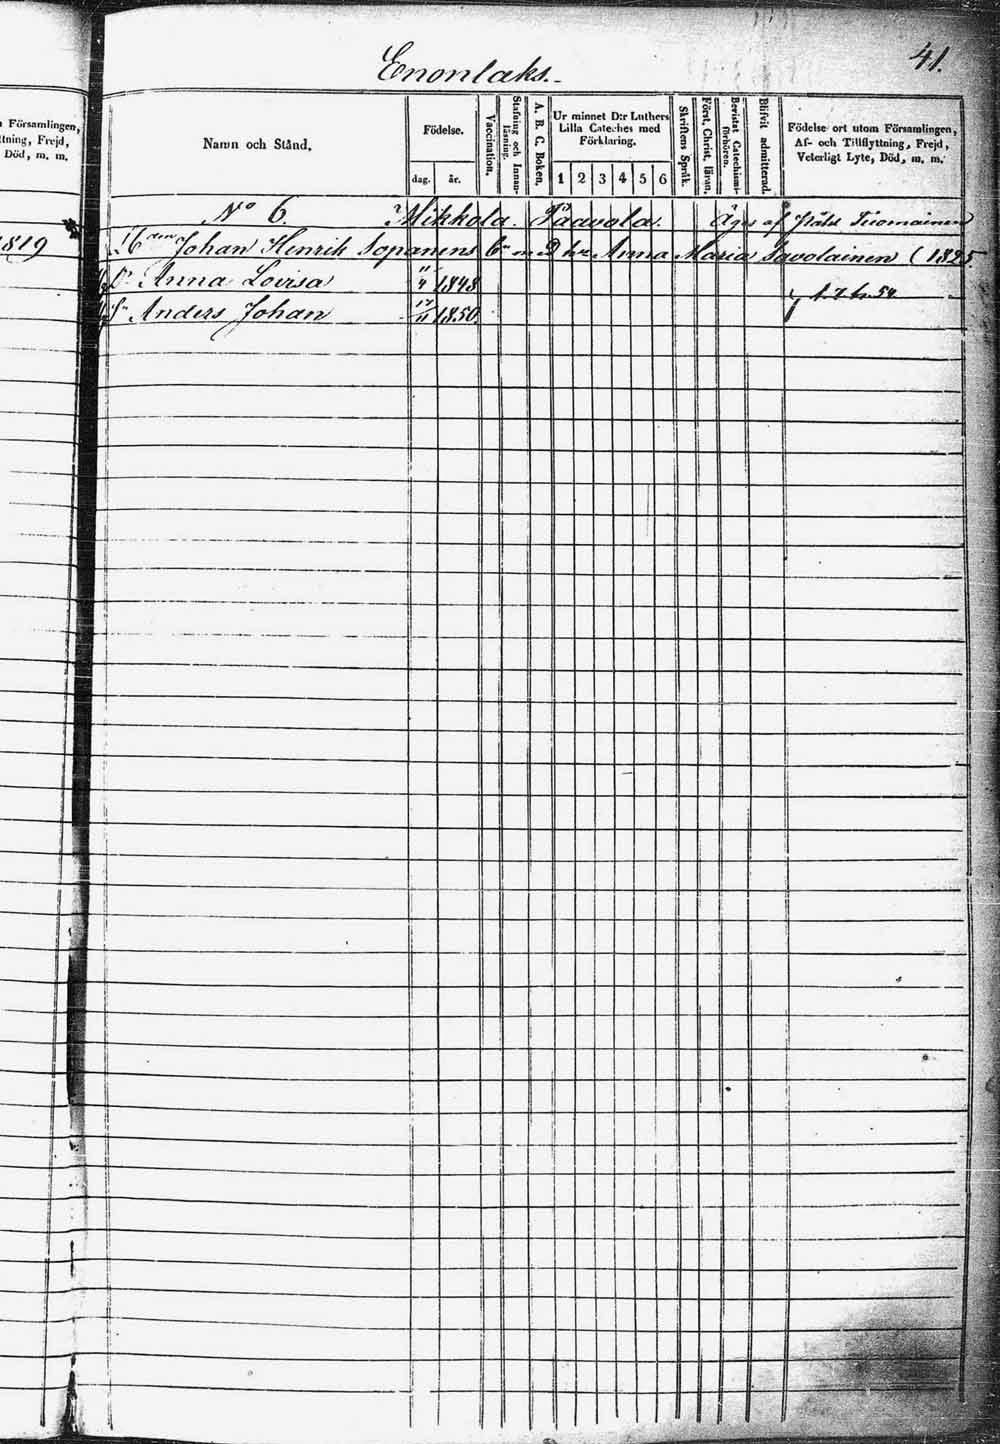 41.
Enonlaks.
Församlingen,
ttning, Frejd,
Död, m. m.
Namn och Stånd.
Födelse.
dag.
år.
Vaccination.
Stafning och Innan-
läsning.
A. B. C. Boken.
Ur minnet D:r Luthers
Lilla Cateches med
Förklaring.
1 2 3 4 5 6
Skriftens Språk.
Först. Christ. läran.
Bevistat Catechismi-
förhören.
Blifvit admitterad.
Födelse ort utom Församlingen,
Af- och Tillflyttning, Frejd,
Veterligt Lyte, Död, m. m.
No 6. Mikkola Paavola. Äges af Tiomainen
1819
Johan Henrik Sopanens Anna Maria Savolainen (1825.
Dr Anna Lovisa 1848
Sn Anders Johan 1850